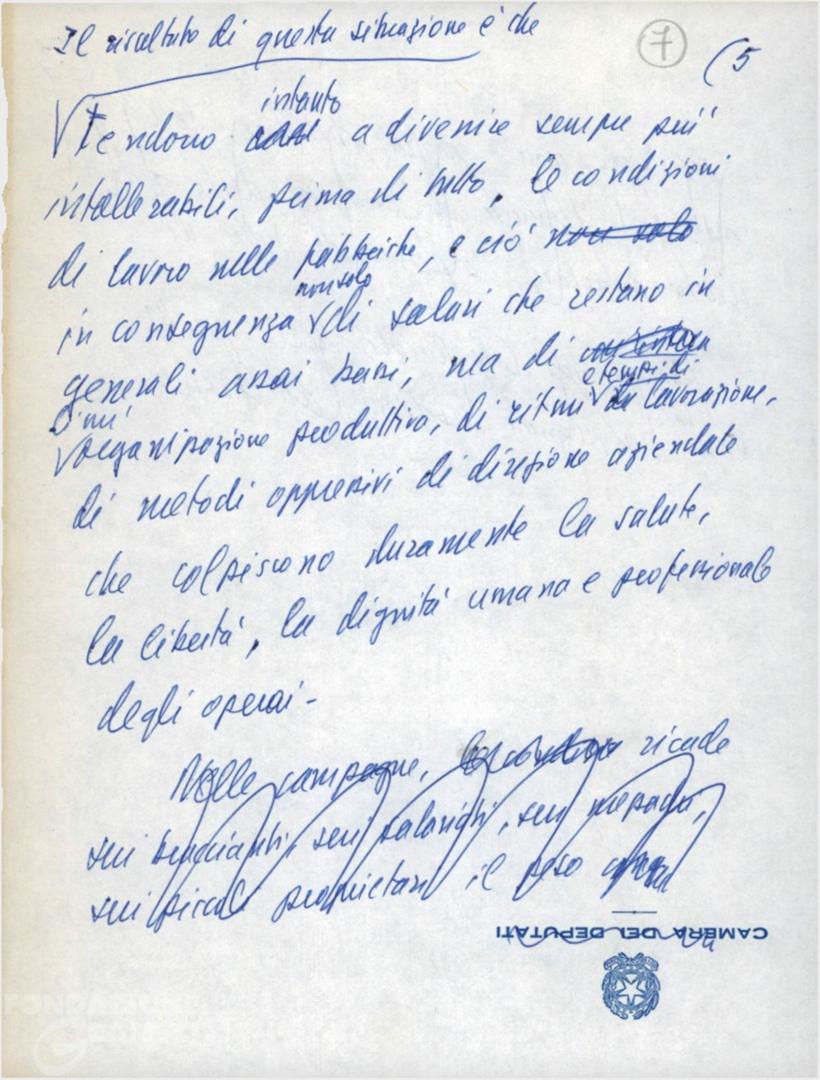 Il risultato di questa situazione è che
7
(5
intanto
tendono a divenire sempre più
intollerabili, prima di tutto, le condizioni
di lavoro nelle fabbriche, e ciò non solo
non solo
in conseguenza di salari che restano in
generali assai bassi, ma di
e tempi di
di un'
organizzazione produttiva, di ritmi di lavorazione,
di metodi oppressivi di direzione aziendale
che colpiscono duramente la salute,
la libertà, la dignità umana e professionale
degli operai -
Nelle campagne, ricade
sui braccianti, sui salariati, sui mezzadri,
sui piccoli proprietari il peso
CAMERA DEI DEPUTATI